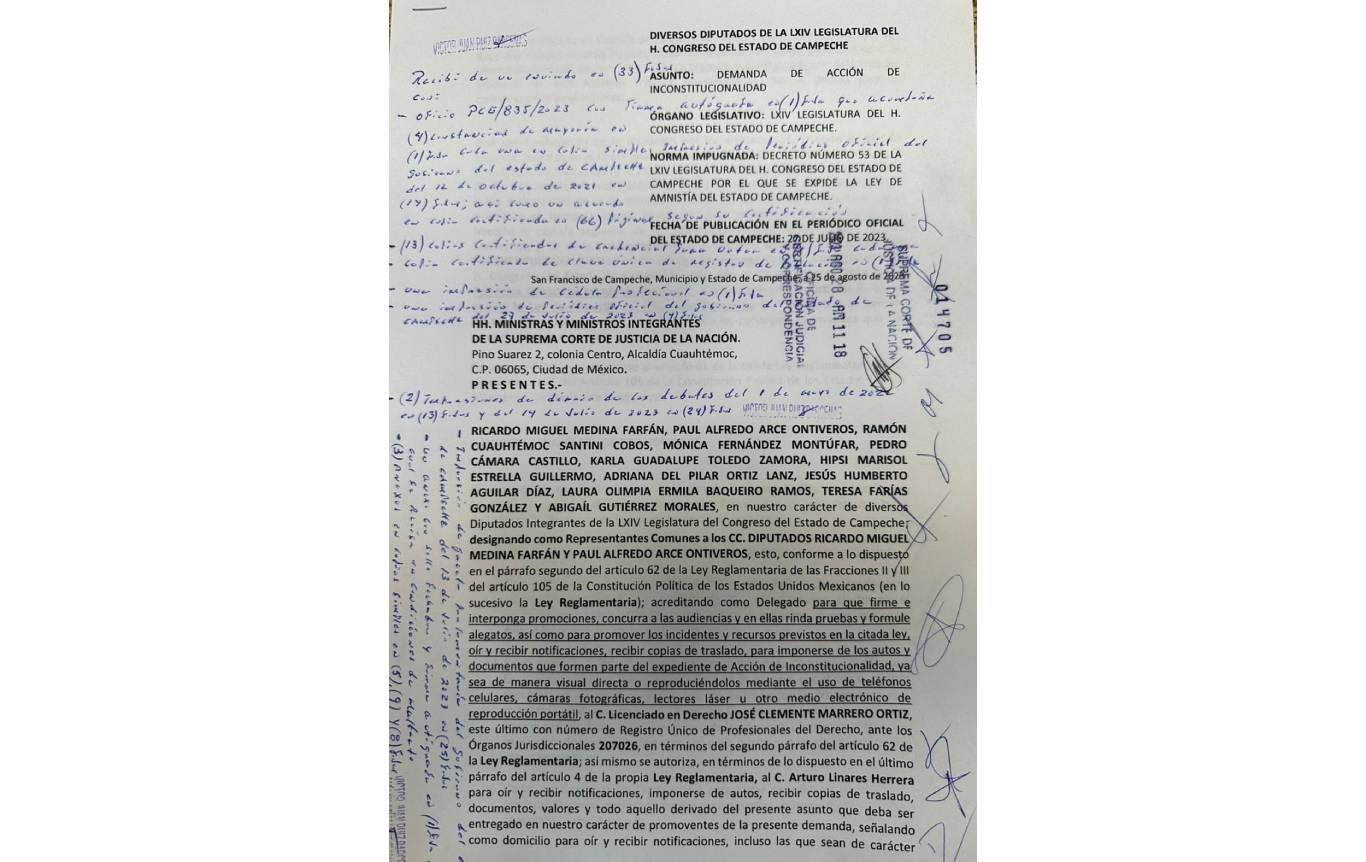 DIVERSOS DIPUTADOS DE LA LXIV LEGISLATURA DEL
H. CONGRESO DEL ESTADO DE CAMPECHE
VICTOR JUAN RUIZ BARCENAS
Recibí de un enviado en (33) fojas
con:
ASUNTO: DEMANDA DE ACCIÓN DE
INCONSTITUCIONALIDAD
- oficio PCG/835/2023 con firma autógrafa en (1) foja que acompaña
ÓRGANO LEGISLATIVO: LXIV LEGISLATURA DEL H.
CONGRESO DEL ESTADO DE CAMPECHE.
(4) constancias de mayoría en
(1) foja cada una en copia simple, impresión de Periódico Oficial del
NORMA IMPUGNADA: DECRETO NÚMERO 53 DE LA
LXIV LEGISLATURA DEL H. CONGRESO DEL ESTADO DE
CAMPECHE POR EL QUE SE EXPIDE LA LEY DE
AMNISTÍA DEL ESTADO DE CAMPECHE.
Gobierno del estado de CAMPECHE
del 12 de octubre de 2021 en
(17) fojas; así como un acuerdo
en copia certificada en (66) páginas según su certificación
FECHA DE PUBLICACIÓN EN EL PERIÓDICO OFICIAL
DEL ESTADO DE CAMPECHE: 2 DE JULIO DE 2023
- (13) copias certificadas de credencial para votar en
- copia certificada de clave única de registro de
San Francisco de Campeche, Municipio y Estado de Campeche, a 25 de agosto de 2023
- una impresión de cédula profesional en (1) foja
- una impresión de Periódico oficial del gobierno del estado de
CAMPECHE del 27 de julio de 2023 en (4) fojas
SUPREMA CORTE DE
JUSTICIA DE LA NACIÓN
AGO 28 AM 11 18
OFICINA DE
CERTIFICACIÓN JUDICIAL
Y CORRESPONDENCIA
014705
HH. MINISTRAS Y MINISTROS INTEGRANTES
DE LA SUPREMA CORTE DE JUSTICIA DE LA NACIÓN.
Pino Suarez 2, colonia Centro, Alcaldía Cuauhtémoc,
C.P. 06065, Ciudad de México.
P R E S E N T E S.-
- (2) Impresiones de diario de los debates del 1 de mayo de
en (13) fojas y del 14 de Julio de 2023 en (24) fojas
VICTOR JUAN RUIZ BARCENAS
RICARDO MIGUEL MEDINA FARFÁN, PAUL ALFREDO ARCE ONTIVEROS, RAMÓN
CUAUHTÉMOC SANTINI COBOS, MÓNICA FERNÁNDEZ MONTÚFAR, PEDRO
CÁMARA CASTILLO, KARLA GUADALUPE TOLEDO ZAMORA, HIPSI MARISOL
ESTRELLA GUILLERMO, ADRIANA DEL PILAR ORTIZ LANZ, JESÚS HUMBERTO
AGUILAR DÍAZ, LAURA OLIMPIA ERMILA BAQUEIRO RAMOS, TERESA FARÍAS
GONZÁLEZ Y ABIGAÍL GUTIÉRREZ MORALES, en nuestro carácter de diversos
Diputados Integrantes de la LXIV Legislatura del Congreso del Estado de Campeche;
designando como Representantes Comunes a los CC. DIPUTADOS RICARDO MIGUEL
MEDINA FARFÁN Y PAUL ALFREDO ARCE ONTIVEROS, esto, conforme a lo dispuesto
en el párrafo segundo del articulo 62 de la Ley Reglamentaria de las Fracciones II y III
del artículo 105 de la Constitución Política de los Estados Unidos Mexicanos (en lo
sucesivo la Ley Reglamentaria); acreditando como Delegado para que firme e
interponga promociones, concurra a las audiencias y en ellas rinda pruebas y formule
alegatos, así como para promover los incidentes y recursos previstos en la citada ley,
oír y recibir notificaciones, recibir copias de traslado, para imponerse de los autos y
documentos que formen parte del expediente de Acción de Inconstitucionalidad, ya
sea de manera visual directa o reproduciéndolos mediante el uso de teléfonos
celulares, cámaras fotográficas, lectores láser u otro medio electrónico de
reproducción portátil, al C. Licenciado en Derecho JOSÉ CLEMENTE MARRERO ORTIZ,
este último con número de Registro Único de Profesionales del Derecho, ante los
Órganos Jurisdiccionales 207026, en términos del segundo párrafo del artículo 62 de
la Ley Reglamentaria; así mismo se autoriza, en términos de lo dispuesto en el último
párrafo del artículo 4 de la propia Ley Reglamentaria, al C. Arturo Linares Herrera
para oír y recibir notificaciones, imponerse de autos, recibir copias de traslado,
documentos, valores y todo aquello derivado del presente asunto que deba ser
entregado en nuestro carácter de promoventes de la presente demanda, señalando
como domicilio para oír y recibir notificaciones, incluso las que sean de carácter
- Impresión de Gaceta Parlamentaria del Gobierno del
de CAMPECHE del 13 de Julio de 2023 en (25) fojas
- un anexo con sello fechador y firma autógrafa en (1) foja
- (3) Anexos en copias simples en (5), (9) y (8) fojas